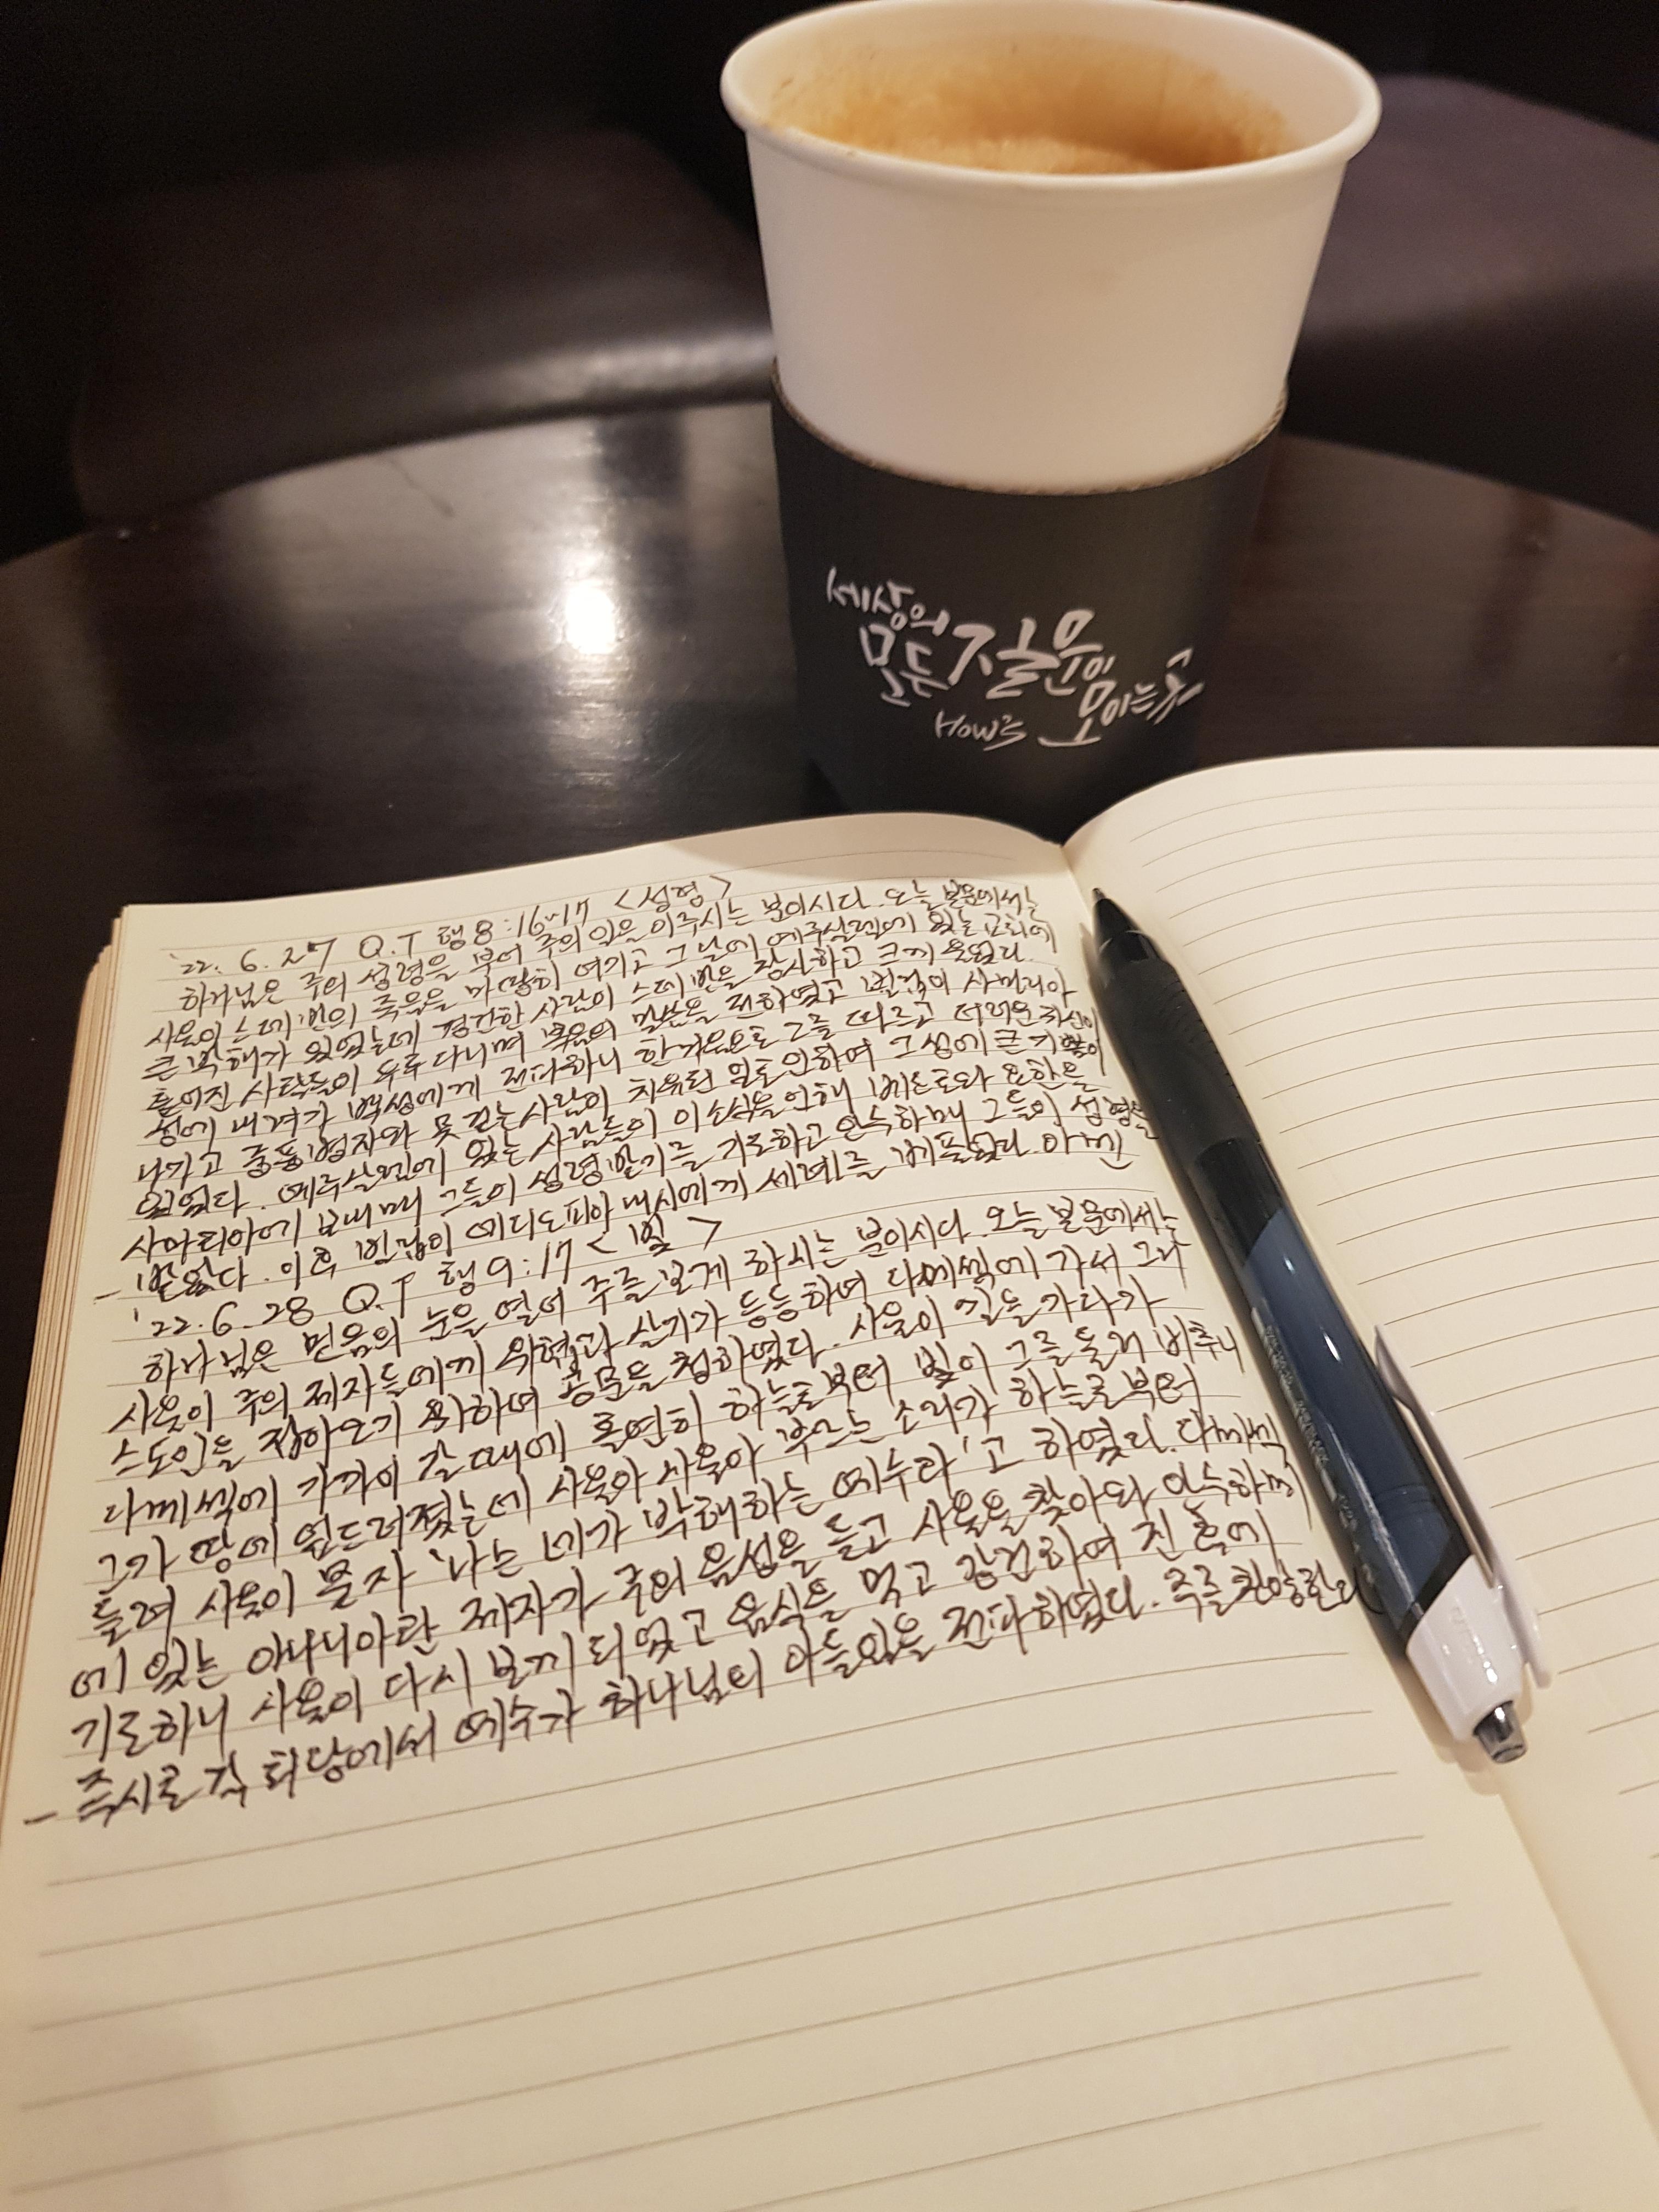 세상의
모든 질문이
모이는 곳
How's
'22. 6. 27 Q.T 행8:16~17 <성령>
하나님은 주의 성령을 부어 주의 일을 이루시는 분이시다. 오늘 본문에서는
사울이 스데반의 죽음을 마땅히 여기고 그 날에 예루살렘에 있는 교회에
큰 박해가 있었는데 경건한 사람이 스데반을 장사하고 크게 울었다.
흩어진 사람들이 두루 다니며 복음의 말씀을 전하였고 빌립이 사마리아
성에 내려가 백성에게 전파하니 한마음으로 그를 따르고 더러운 귀신이
나가고 중풍병자와 못 걷는 사람이 치유된 일로 인하여 그 성에 큰 기쁨이
있었다. 예루살렘에 있는 사람들이 이 소식을 인해 베드로와 요한을
사마리아에 보내매 그들이 성령받기를 기도하고 안수하매 그들이 성령을
- 받았다. 이후 빌립이 에디오피아 내시에게 세례를 베풀었다. 아멘
'22. 6. 28 Q.T 행9:17 <빛>
하나님은 믿음의 눈을 열어 주를 보게 하시는 분이시다. 오늘 본문에서는
사울이 주의 제자들에게 위협과 살기가 등등하며 다메섹에 가서 그리
스도인들 잡아오기 위하여 공문을 청하였다. 사울이 길을 가다가
다메섹에 가까이 갈 때에 홀연히 하늘로부터 빛이 그를 둘러 비추니
그가 땅에 엎드러졌는데 사울아 사울아 부르는 소리가 하늘로부터
들려 사울이 묻자 '나는 네가 박해하는 예수라'고 하였다. 다메섹
에 있는 아나니아란 제자가 주의 음성을 듣고 사울을 찾아와 안수하며
기도하니 사울이 다시 보게 되었고 음식을 먹고 강건하여 진 후에
- 즉시로 각 회당에서 예수가 하나님의 아들임을 전파하였다. 주를 찬양한다